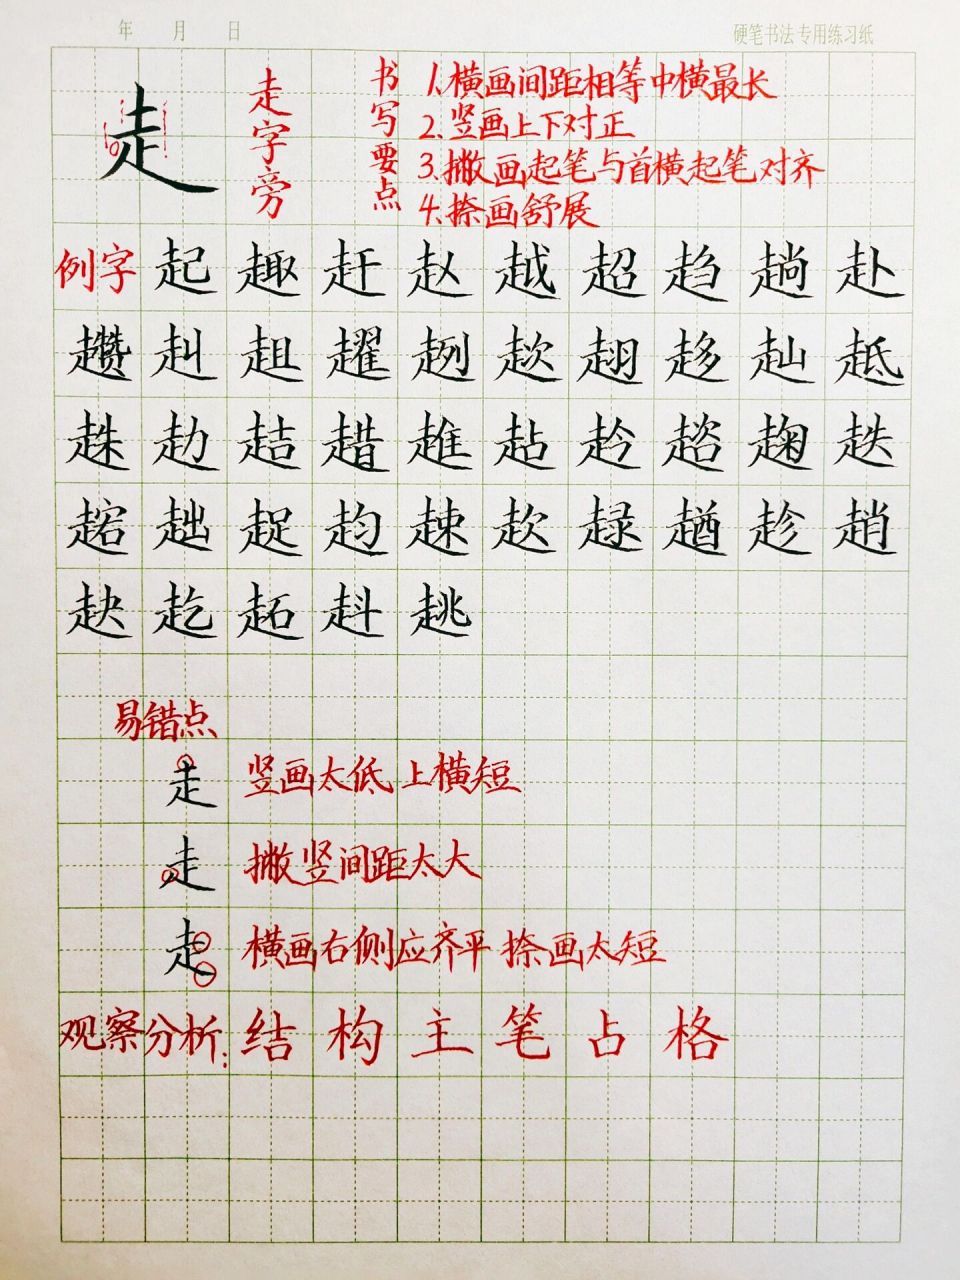 年 月 日 硬笔书法专用练习纸
走
走字旁
书写要点
1.横画间距相等中横最长
2.竖画上下对正
3.撇画起笔与首横起笔对齐
4.捺画舒展
例字 起 趣 赶 赵 越 超 趋 趟 赴
趱 赳 趄 趯 趔 趑 趐 趍 赸 趆
趎 赲 趌 趞 趡 趈 赺 趋 趜 趃
赼 趉 趗 赹 趚 趑 趢 趥 趁 趙
赽 赾 跖 赳 趒
易错点
走 竖画太低 上横短
走 撇竖间距太大
走 横画右侧应齐平 捺画太短
观察分析: 结构 主笔 占格